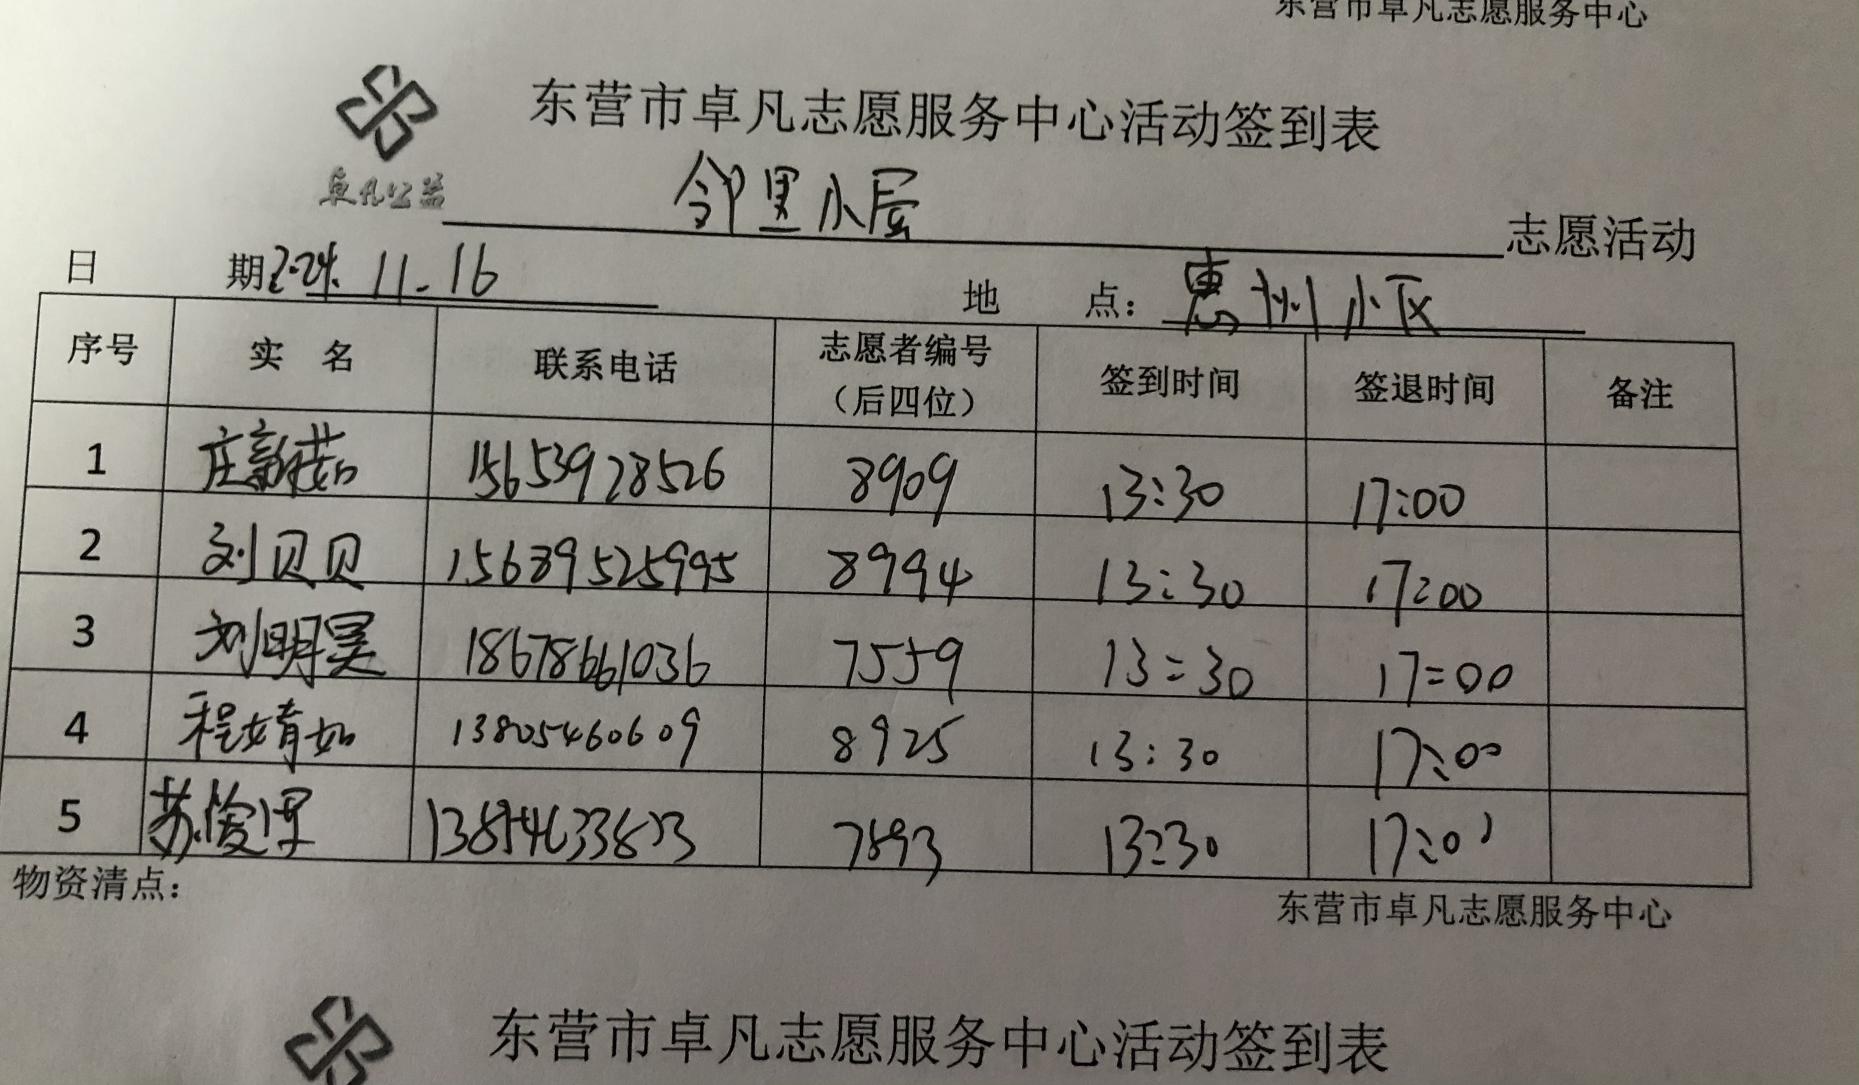 东营市卓凡志愿服务中心
东营市卓凡志愿服务中心活动签到表
卓凡公益
邻里小屋 志愿活动
日 期2024.11.16 地 点：惠州小区
序号 实 名 联系电话 志愿者编号（后四位） 签到时间 签退时间 备注
1 庄新茹 15653928526 8909 13:30 17:00
2 刘贝贝 15689525995 8994 13:30 17:00
3 刘明昊 18678661036 7559 13:30 17:00
4 程婧如 13805460609 8925 13:30 17:00
5 苏俊 7893 13:30 17:00
物资清点：
东营市卓凡志愿服务中心
东营市卓凡志愿服务中心活动签到表